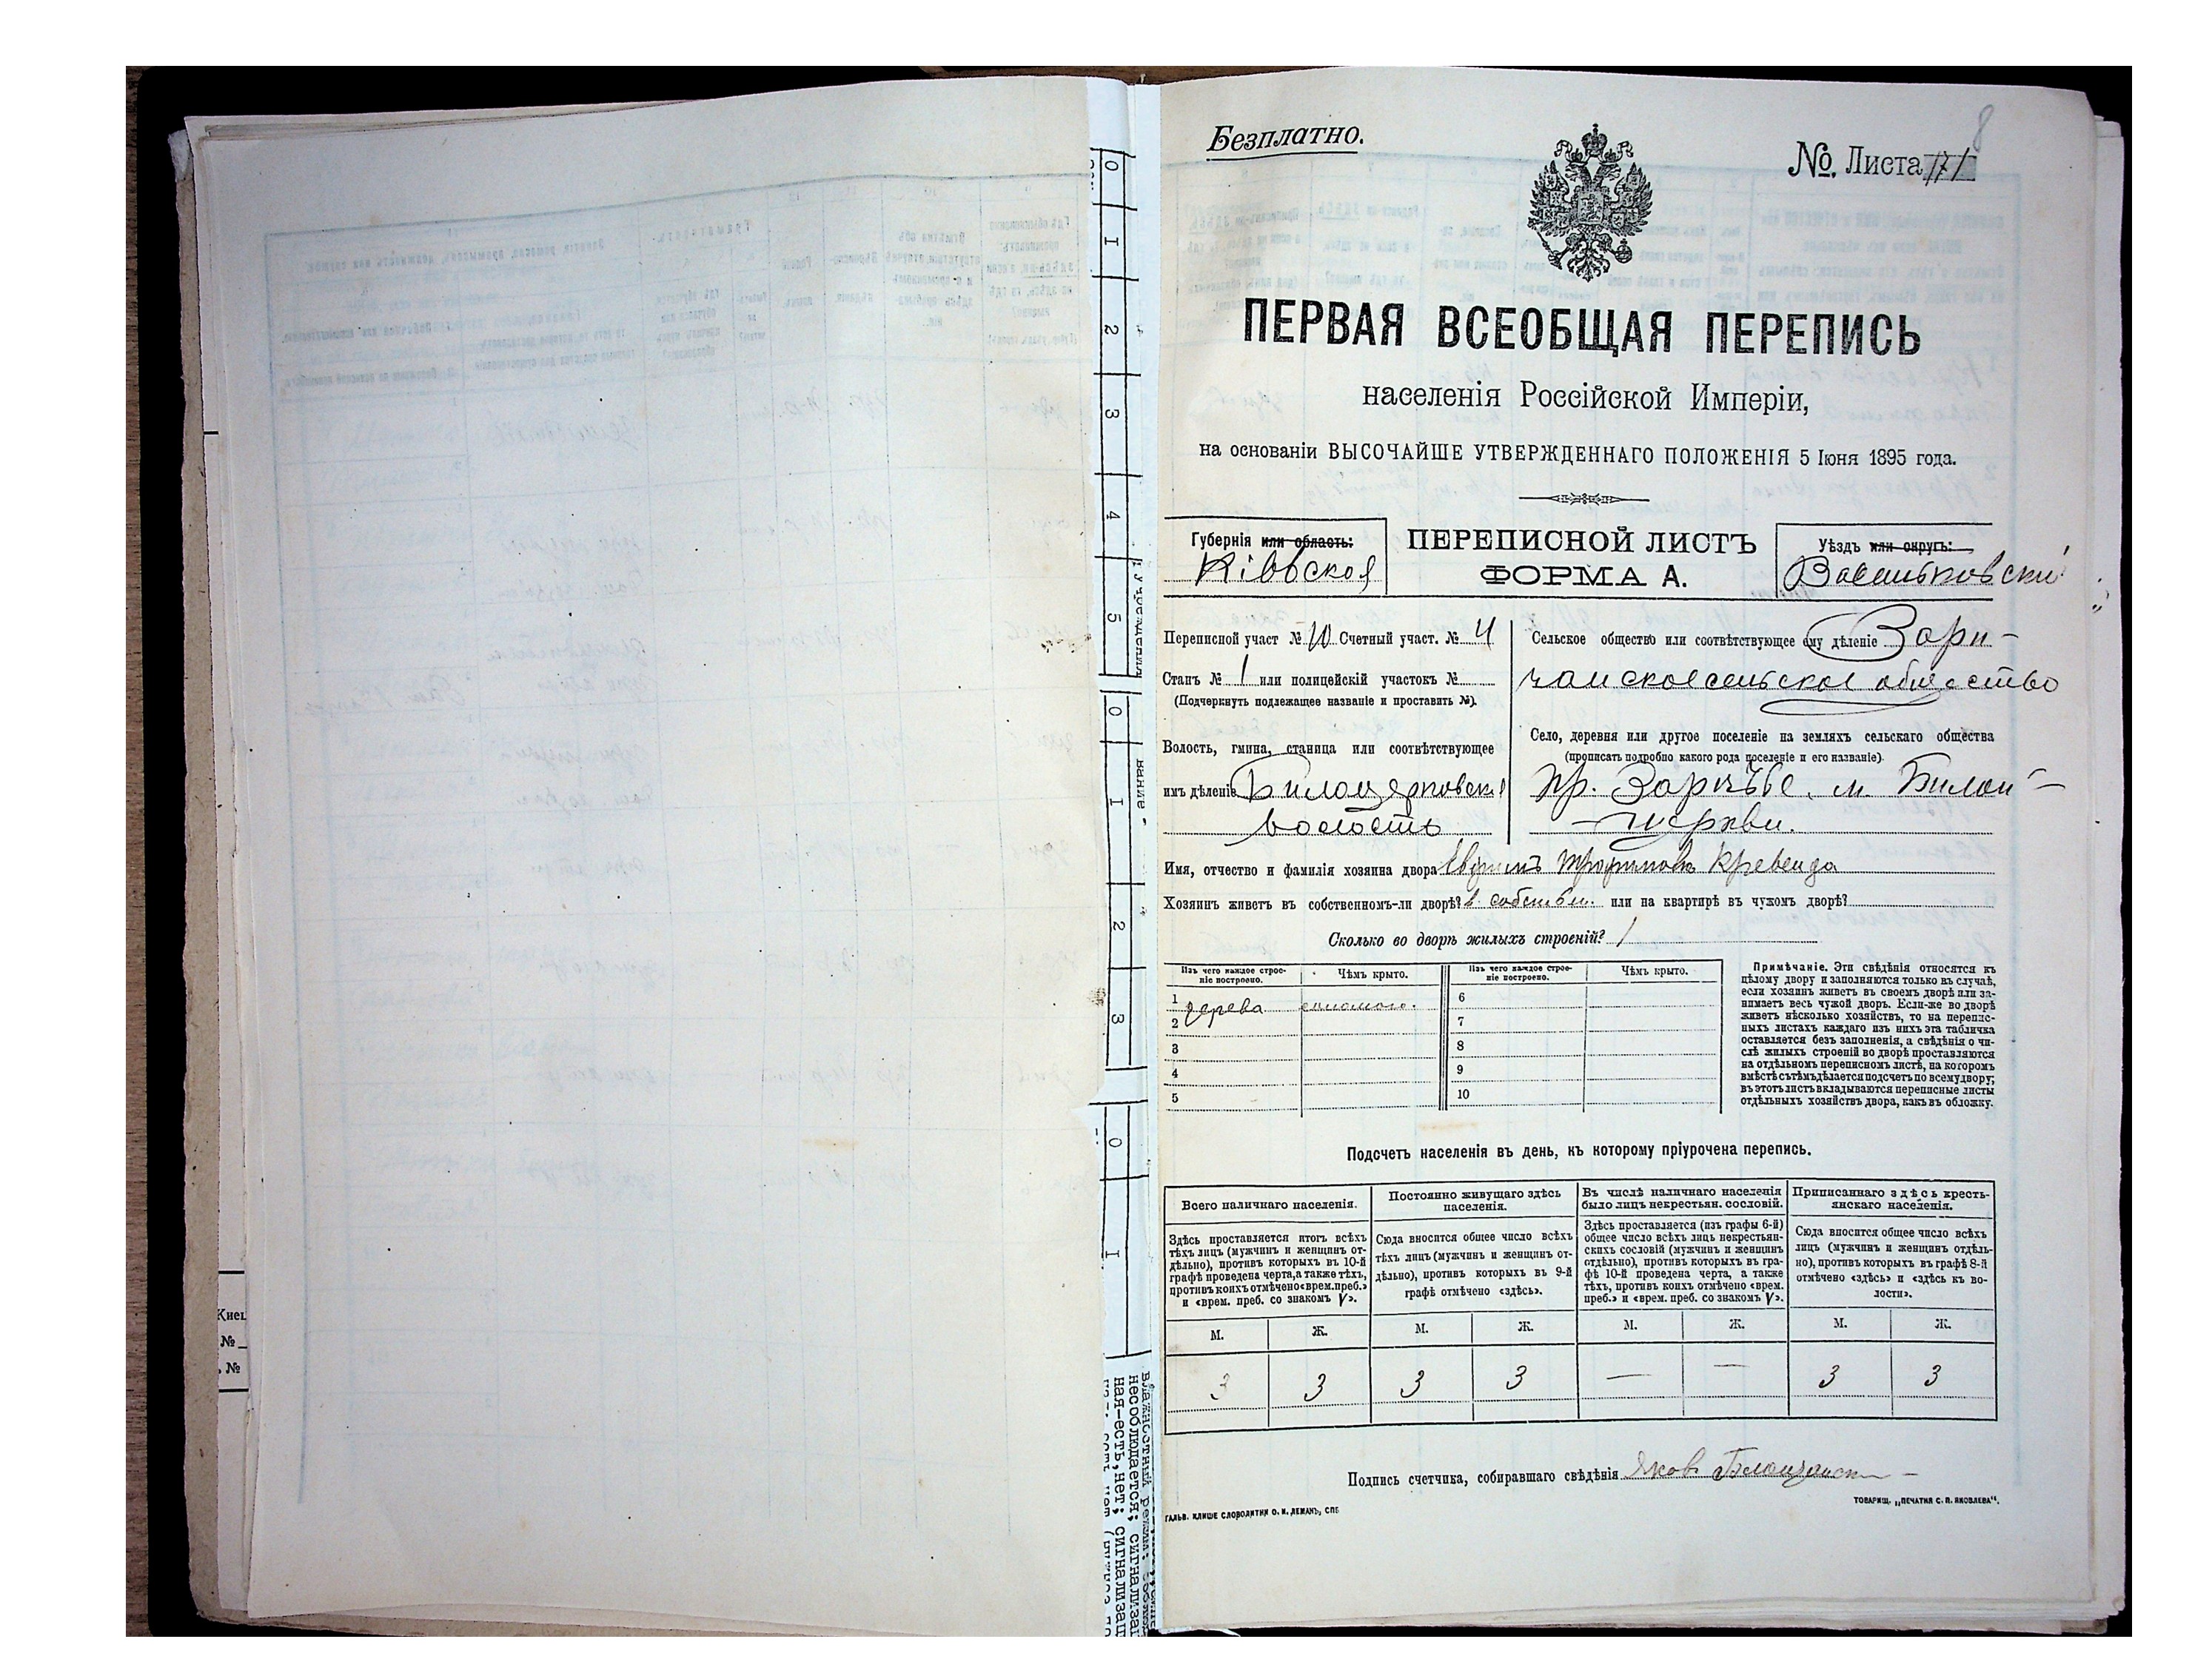 8
Безплатно.
№. Листа 171
ПЕРВАЯ ВСЕОБЩАЯ ПЕРЕПИСЬ
населенія Россійской Имперіи,
на основаніи ВЫСОЧАЙШЕ УТВЕРЖДЕННАГО ПОЛОЖЕНІЯ 5 Іюня 1895 года.
Губернія или область:
Кіевская
ПЕРЕПИСНОЙ ЛИСТЪ
ФОРМА А.
Уѣздъ или округъ:
Васильковскій
Переписной участ № 10 Счетный участ. № 4
Станъ № 1 или полицейскій участокъ №
(Подчеркнуть подлежащее названіе и проставить №).
Волость, гмина, станица или соотвѣтствующее
имъ дѣленіе Билоцерковская
волость
Сельское общество или соотвѣтствующее ему дѣленіе Зари-
чанское сельское общество
Село, деревня или другое поселеніе на земляхъ сельскаго общества
(прописать подробно какого рода поселеніе и его названіе).
пр. Зарѣчье м. Билой-
церкви.
Имя, отчество и фамилія хозяина двора Трофимовъ Кревенда
Хозяинъ живетъ въ собственномъ-ли дворѣ? в собствен. или на квартирѣ въ чужомъ дворѣ?
Сколько во дворѣ жилыхъ строеній? 1
Изъ чего каждое строе-
ніе построено.
Чѣмъ крыто.
Изъ чего каждое строе-
ніе построено.
Чѣмъ крыто.
1 дерева соломою. 6
2 7
3 8
4 9
5 10
Примѣчаніе. Эти свѣдѣнія относятся къ
цѣлому двору и заполняются только въ случаѣ,
если хозяинъ живетъ въ своемъ дворѣ или за-
нимаетъ весь чужой дворъ. Если-же во дворѣ
живетъ нѣсколько хозяйствъ, то на перепис-
ныхъ листахъ каждаго изъ нихъ эта табличка
оставляется безъ заполненія, а свѣдѣнія о чи-
слѣ жилыхъ строеній во дворѣ проставляются
на отдѣльномъ переписномъ листѣ, на которомъ
вмѣстѣ съ тѣмъ дѣлается подсчетъ по всему двору;
въ этотъ листъ вкладываются переписные листы
отдѣльныхъ хозяйствъ двора, какъ въ обложку.
Подсчетъ населенія въ день, къ которому пріурочена перепись.
Всего наличнаго населенія.
Здѣсь проставляется итогъ всѣхъ
тѣхъ лицъ (мужчинъ и женщинъ от-
дѣльно), противъ которыхъ въ 10-й
графѣ проведена черта, а также тѣхъ,
противъ коихъ отмѣчено «врем. преб.»
и «врем. преб. со знакомъ V».
Постоянно живущаго здѣсь
населенія.
Сюда вносится общее число всѣхъ
тѣхъ лицъ (мужчинъ и женщинъ от-
дѣльно), противъ которыхъ въ 9-й
графѣ отмѣчено «здѣсь».
Въ числѣ наличнаго населенія
было лицъ некрестьян. сословій.
Здѣсь проставляется (изъ графы 6-й)
общее число всѣхъ лицъ некрестьян-
скихъ сословій (мужчинъ и женщинъ
отдѣльно), противъ которыхъ въ гра-
фѣ 10-й проведена черта, а также
тѣхъ, противъ коихъ отмѣчено «врем.
преб.» и «врем. преб. со знакомъ V».
Приписаннаго здѣсь кресть-
янскаго населенія.
Сюда вносится общее число всѣхъ
лицъ (мужчинъ и женщинъ отдѣль-
но), противъ которыхъ въ графѣ 8-й
отмѣчено «здѣсь» и «здѣсь къ во-
лости».
М. Ж. М. Ж. М. Ж. М. Ж.
3 3 3 3 — — 3 3
Подпись счетчика, собиравшаго свѣдѣнія Яков
ГАЛЬВ. КЛИШЕ СЛОВОЛИТНИ О. И. ЛЕМАНЪ, СПБ
ТОВАРИЩ. „ПЕЧАТНЯ С. П. ЯКОВЛЕВА“.